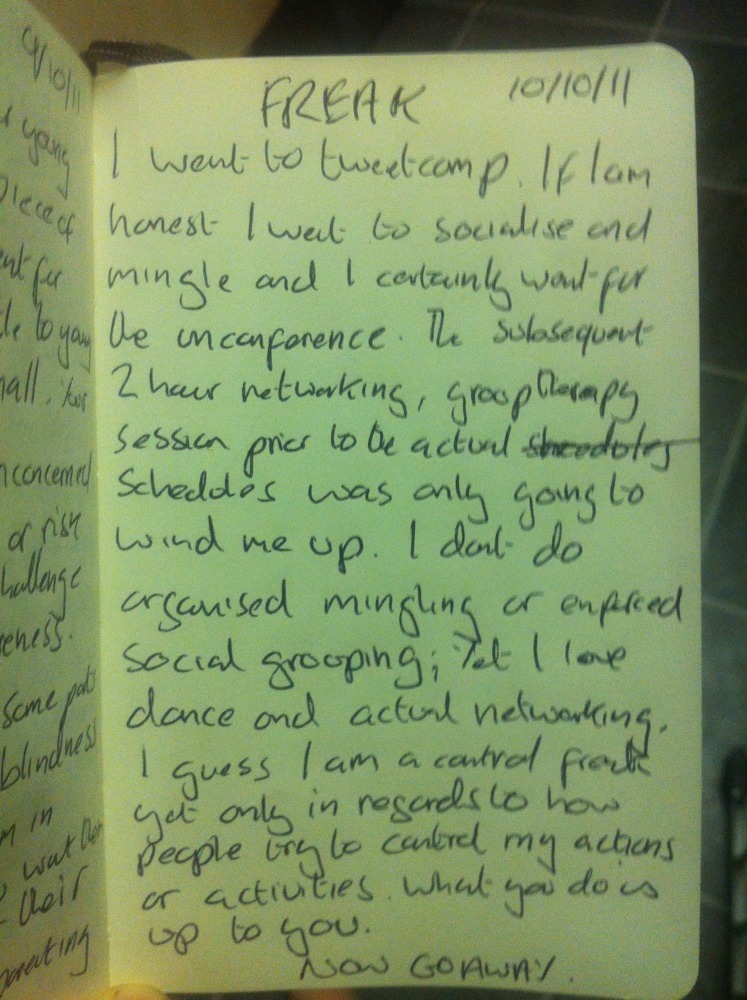 9/10/11
young
piece of
ent for
le to young
hall. Your
nconcerned
or risk
hallenge
reness.
some pats
blindness
m in
want their
their
parenting
FREAK 10/10/11
I went to tweetcamp. If I am
honest I went to socialise and
mingle and I certainly went for
the unconference. The subsequent
2 hour networking, group therapy
session prior to the actual
Scheddles was only going to
wind me up. I don't do
organised mingling or enforced
social grouping; Yet I love
dance and actual networking.
I guess I am a control freak
yet only in regards to how
people try to control my actions
or activities. What you do is
up to you.
NOW GO AWAY.